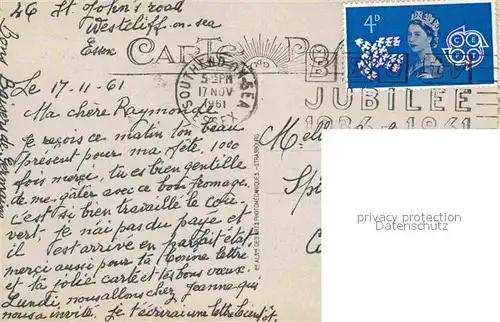 46 St John's road
Westcliff-on-sea
Essex
CARTE POSTALE
Le 17-11-61
Ma chère Raymonde
Je reçois ce matin ton beau
present pour ma fête. 1000
fois merci, tu es bien gentille
de me gâter avec ce bon fromage,
c'est si bien travaillé le couvert, je n'ai pas du payé et
il est arrivé en parfait état,
merci aussi pour ta bonne lettre
et ta jolie carte et tes bons vœux.
Lundi, nous allons chez Jeanne qui
nous a invité. Je t'écrirai une lettre bientôt
Bons Baisers
SOUTHEND-ON-SEA
5-PM
17 NOV
1961
ESSEX
JUBILEE
1936-1961
4D
CEPT
privacy protection
Datenschutz